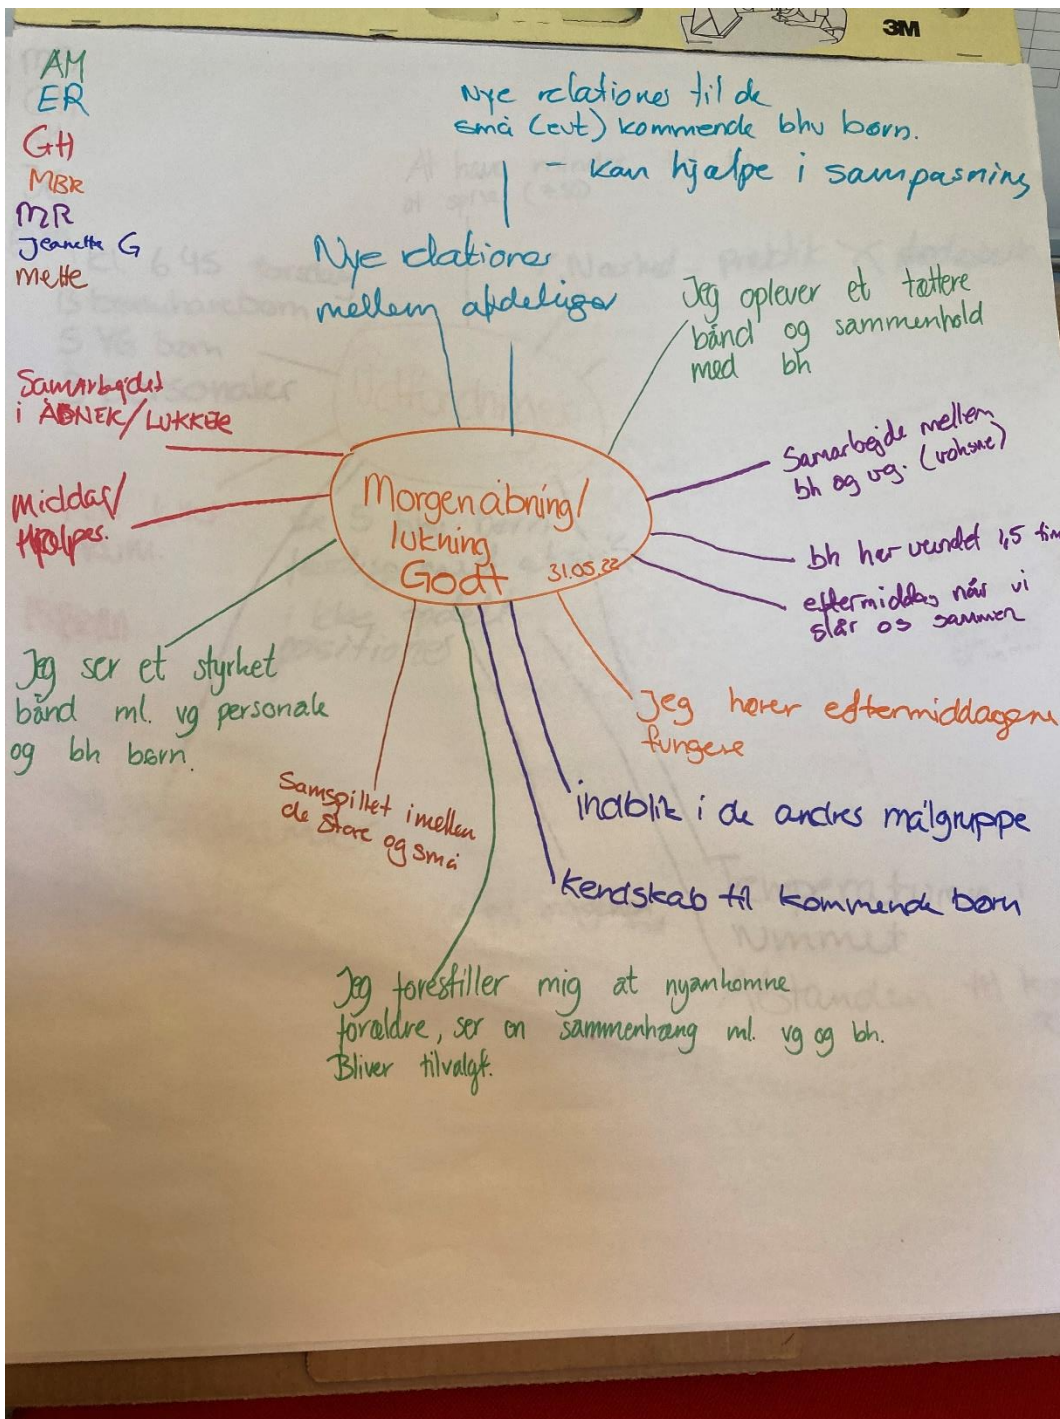 3M
AM
ER
GH
MBR
MR
Jeanette G
Mette
Nye relationer til de
små (evt) kommende bhv børn.
- kan hjælpe i sampasning
Nye relationer
mellem afdelinger
Jeg oplever et tættere
bånd og sammenhold
med bh
Samarbejdet
i ÅBNER/LUKKER
Middag/
Hjælpes.
Samarbejde mellem
bh og vg. (voksne)
bh har vundet 1,5 tim
eftermiddag når vi
slår os sammen
Morgenåbning/
lukning
Godt 31.05.22
Jeg ser et styrket
bånd ml. vg personale
og bh børn.
Jeg hører eftermiddagene
fungere
Samspillet imellem
de store og små
indblik i de andres målgruppe
kendskab til kommende børn
Jeg forestiller mig at nyankomne
forældre, ser en sammenhæng ml. vg og bh.
Bliver tilvalgt.